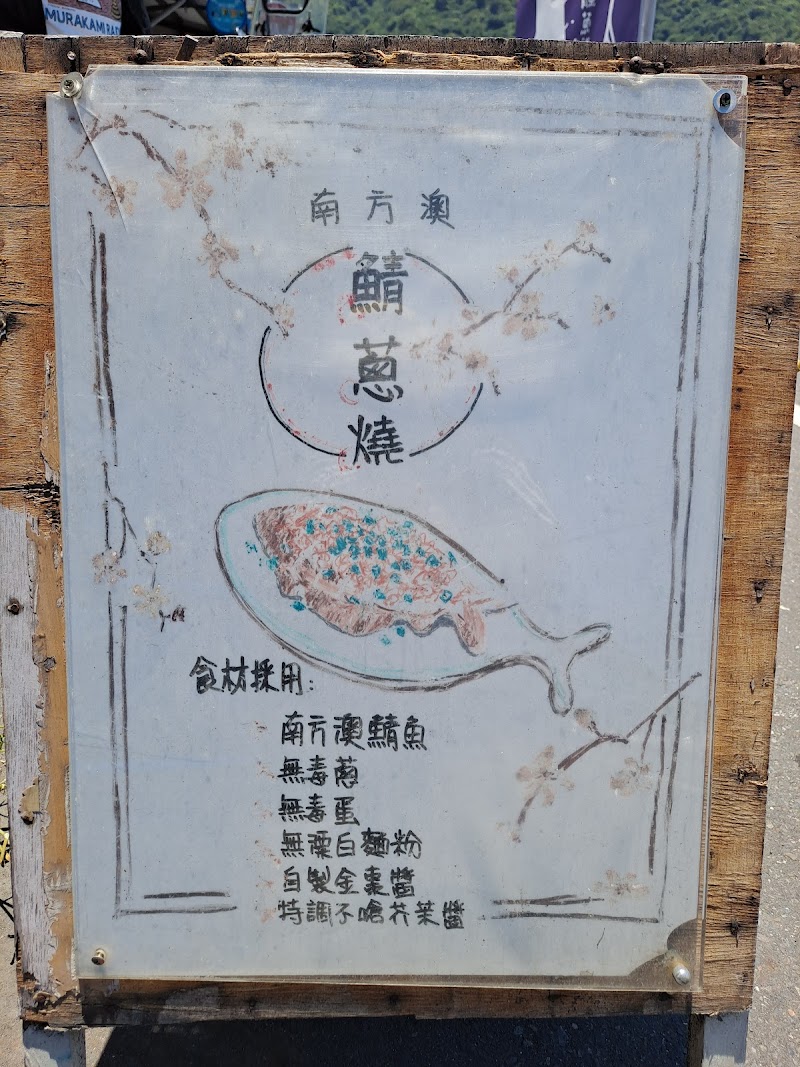 MURAKAMI
南方澳
鯖
蔥
燒
食材採用:
南方澳鯖魚
無毒蔥
無毒蛋
無漂白麵粉
自製金棗醬
特調不嗆芥茉醬